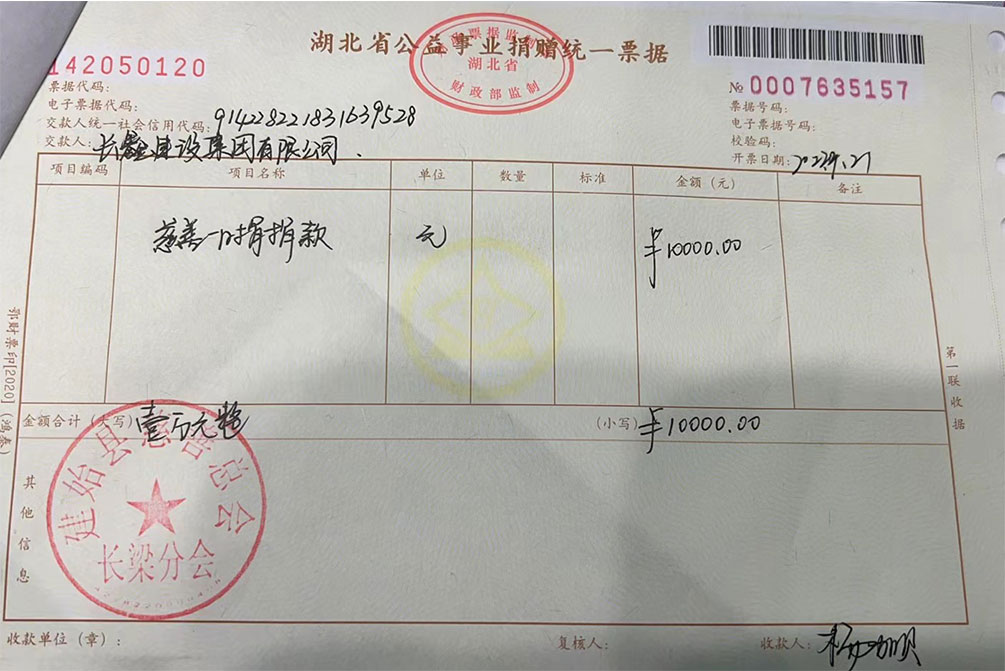 湖北省公益事业捐赠统一票据
票据监制
湖北省
财政部监制
142050120
№ 0007635157
票据代码:
电子票据代码:
交款人统一社会信用代码: 914228221831639528
交款人: 长鑫建设集团有限公司.
票据号码:
电子票据号码:
校验码:
开票日期:
项目编码 项目名称 单位 数量 标准 金额(元) 备注
慈善一日捐捐款 元 ¥10000.00
金额合计(大写) 壹万元整 (小写) ¥10000.00
其他信息
建始县慈善总会
长梁分会
收款单位(章): 复核人: 收款人:
鄂财票印[2020]
第一联 收据